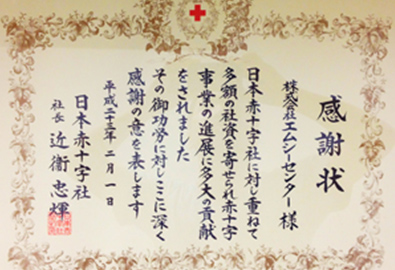 感謝状
株式会社エムシーセンター 様
日本赤十字社に対し重ねて
多額の社資を寄せられ赤十字
事業の進展に多大の貢献
をされました
その御功労に対しここに深く
感謝の意を表します
平成二十三年 二月 一日
日本赤十字社
社長 近衞忠煇